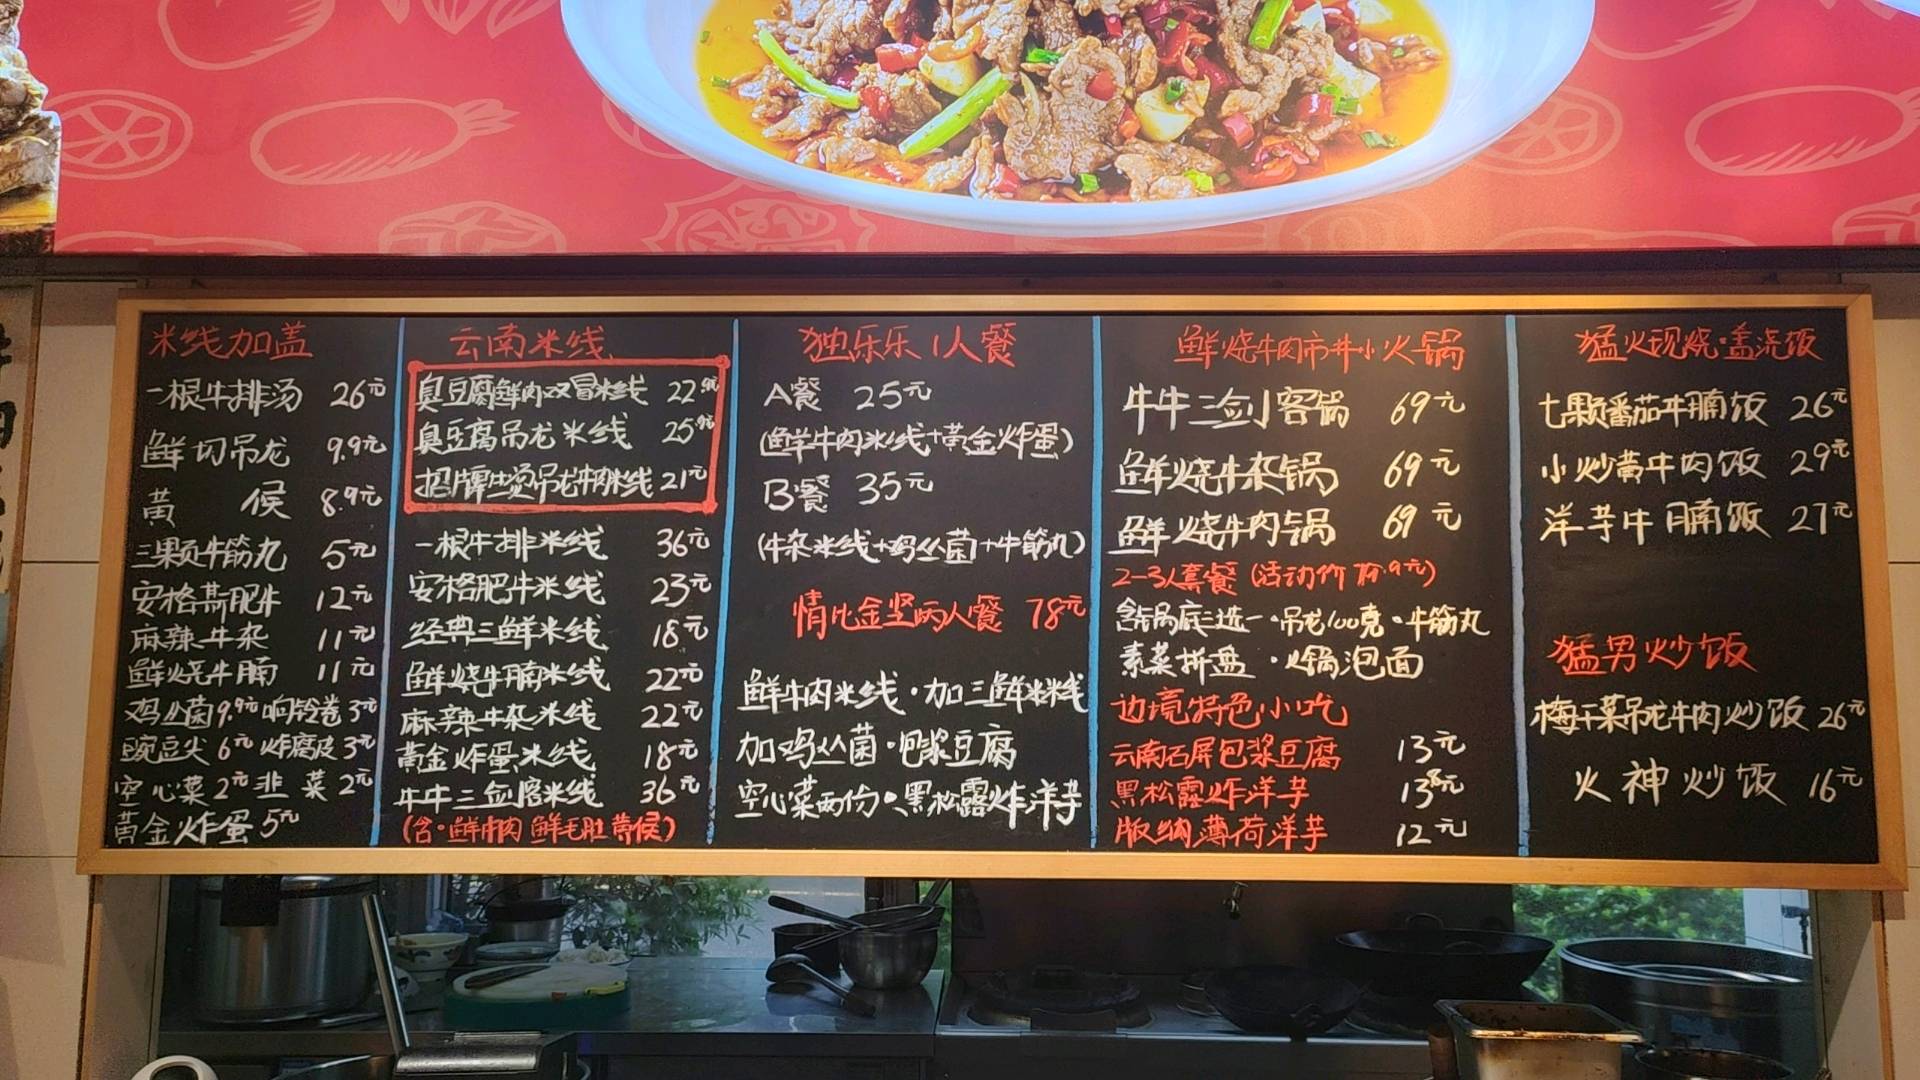 米线加盖
一根牛排汤 26元
鲜切吊龙 9.9元
黄 候 8.9元
三颗牛筋丸 5元
安格斯肥牛 12元
麻辣牛杂 11元
鲜烧牛腩 11元
鸡丛菌 9.9元 响铃卷 3元
豌豆尖 6元 炸腐皮 3元
空心菜 2元 韭 菜 2元
黄金炸蛋 5元
云南米线
臭豆腐鲜肉双冒米线 22
臭豆腐吊龙米线 25
招牌生烫吊龙牛肉米线 21元
一根牛排米线 36元
安格肥牛米线 23元
经典三鲜米线 18元
鲜烧牛腩米线 22元
麻辣牛杂米线 22元
黄金炸蛋米线 18元
牛牛三剑客米线 36元
(含·鲜牛肉 鲜毛肚 黄候)
独乐乐1人餐
A餐 25元
(鲜牛肉米线+黄金炸蛋)
B餐 35元
(牛杂米线+鸡丛菌+牛筋丸)
情比金坚两人餐 78元
鲜牛肉米线·加三鲜米线
加鸡丛菌·包浆豆腐
空心菜两份·黑松露炸洋芋
鲜烧牛肉市井小火锅
牛牛三剑客锅 69元
鲜烧牛杂锅 69元
鲜烧牛肉锅 69元
2-3人套餐(活动价 .9元)
含锅底三选一·吊龙100克·牛筋丸
素菜拼盘·火锅泡面
边境特色小吃
云南石屏包浆豆腐 13元
黑松露炸洋芋 13元
版纳薄荷洋芋 12元
猛火现烧·盖浇饭
七颗番茄牛腩饭 26元
小炒黄牛肉饭 29元
洋芋牛腩饭 27元
猛男炒饭
梅干菜吊龙牛肉炒饭 26元
火神炒饭 16元